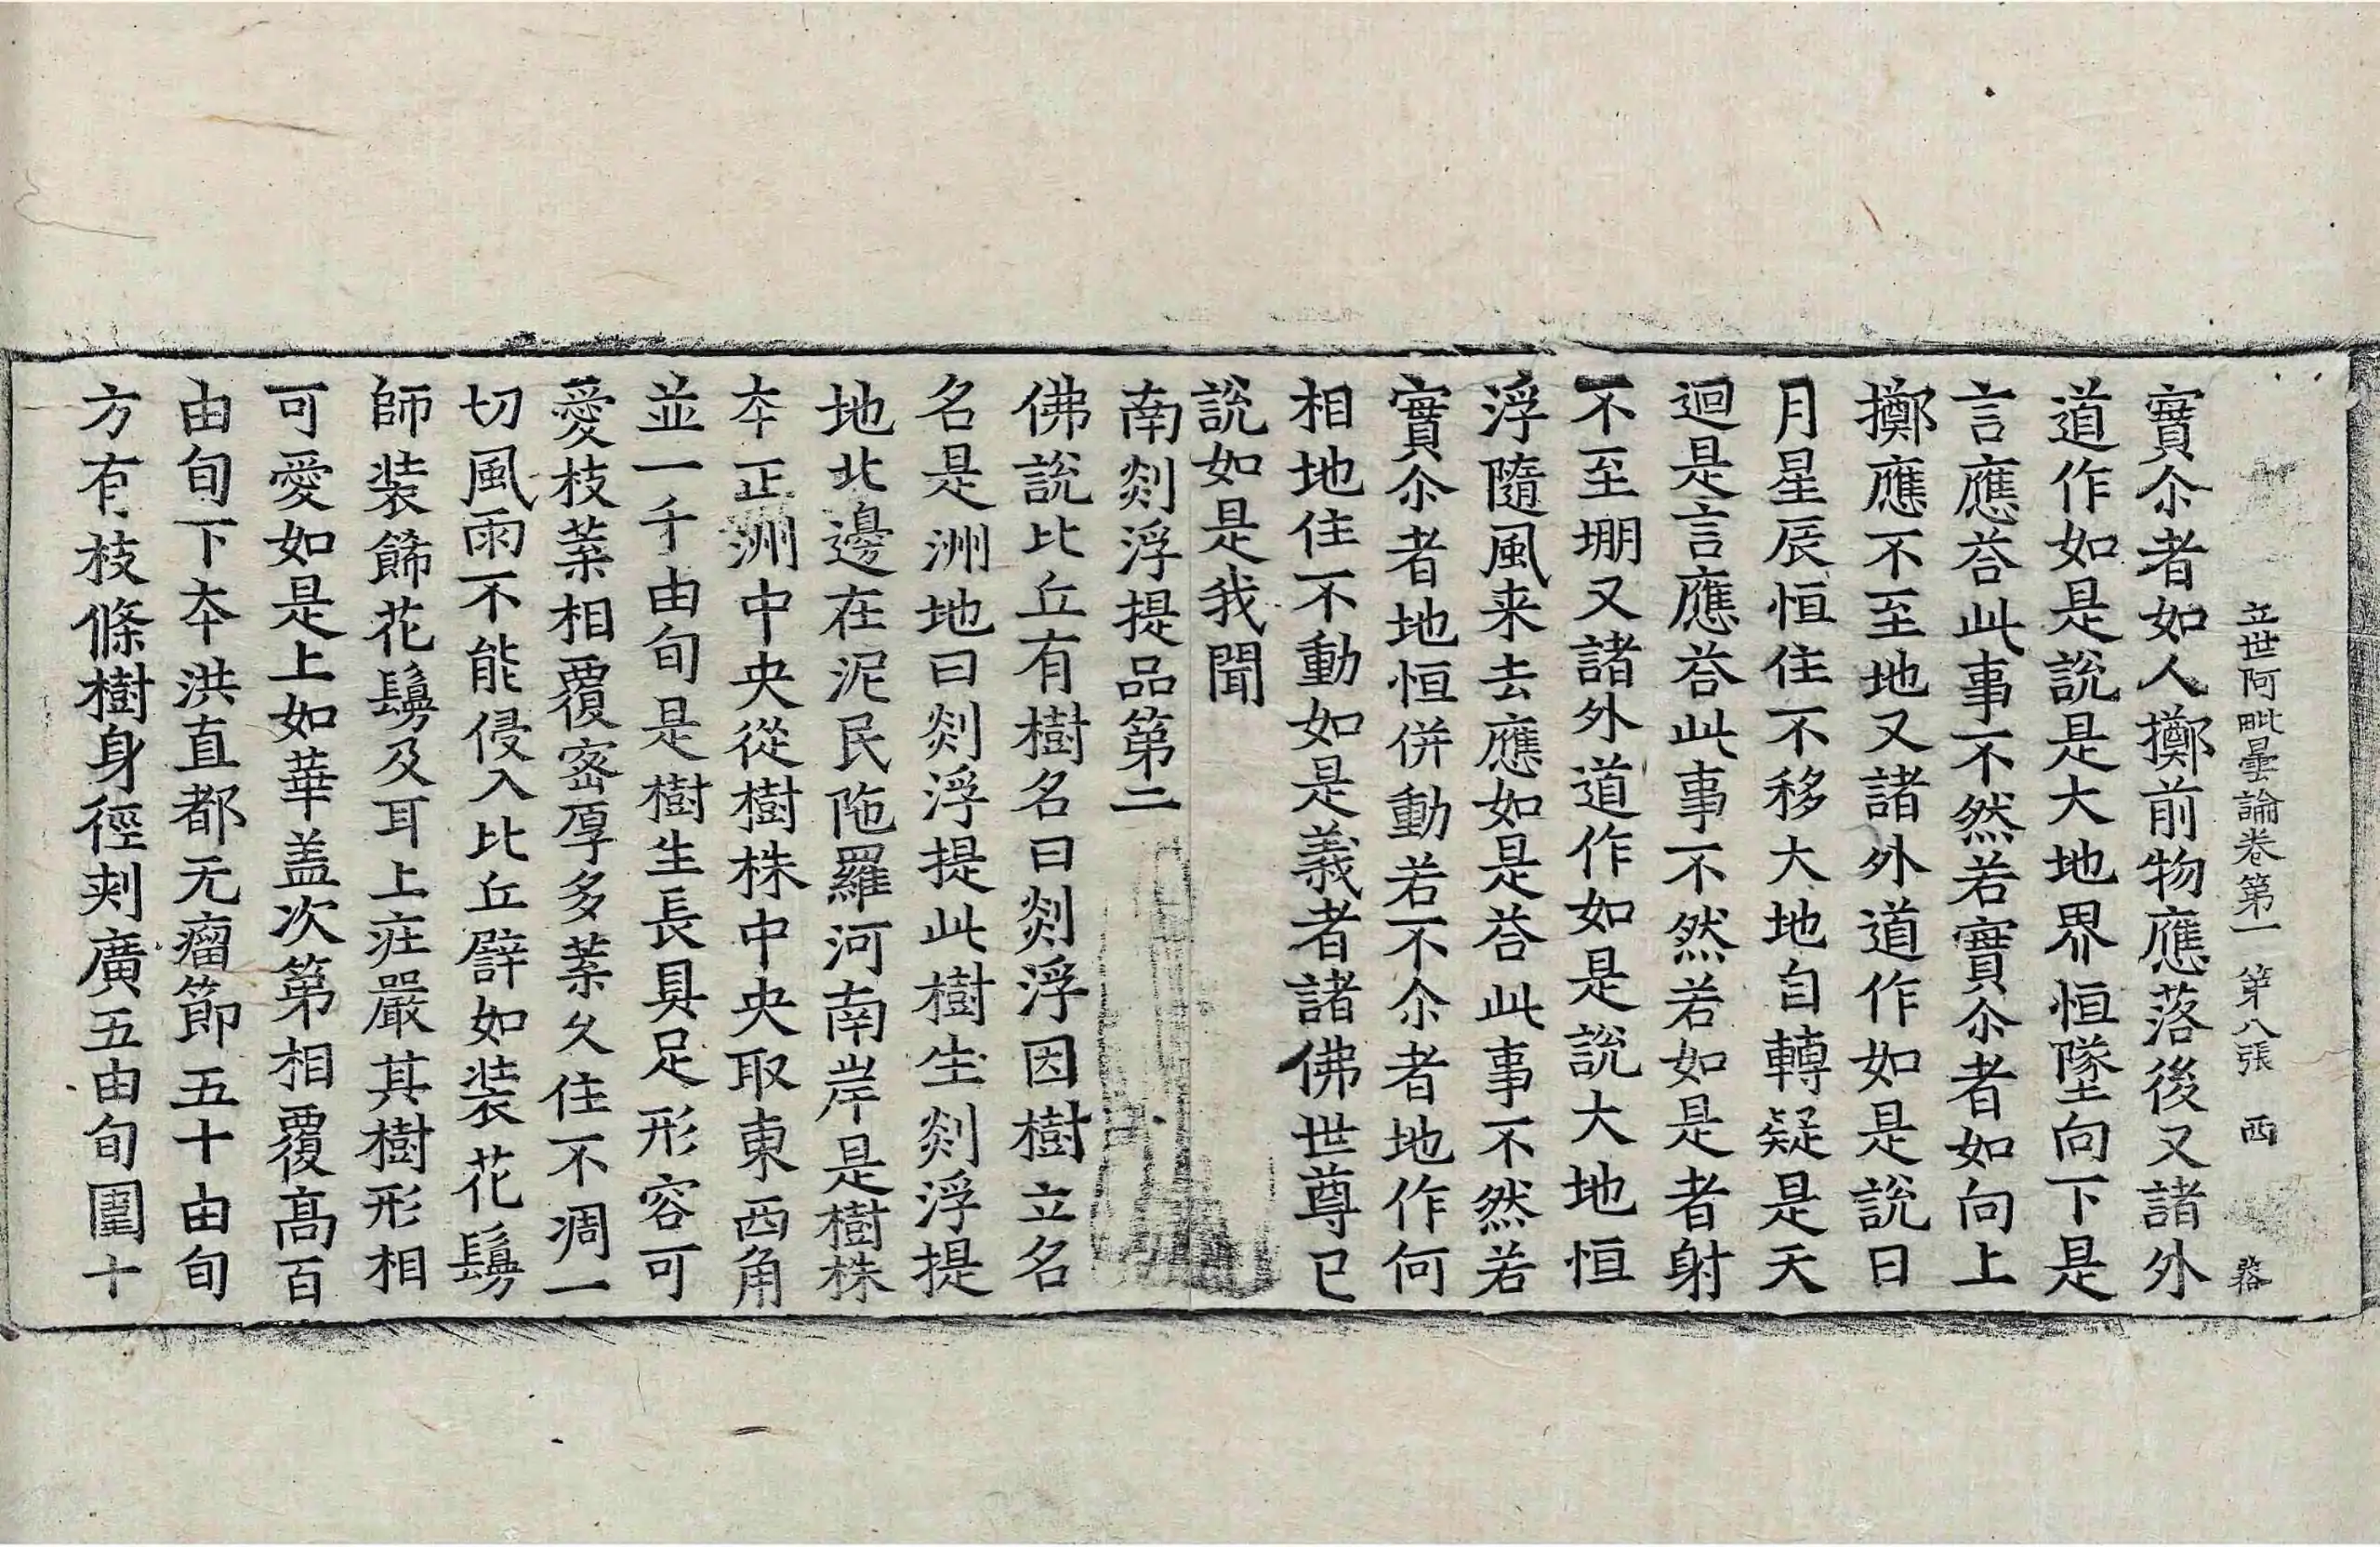 立世阿毗曇論卷第一 第八張 西
實尒者如人擲前物應落後又諸外
道作如是說是大地界恒墜向下是
言應荅此事不然若實尒者如向上
擲應不至地又諸外道作如是說日
月星辰恒住不移大地自轉疑是天
迴是言應荅此事不然若如是者射
不至堋又諸外道作如是說大地恒
浮隨風来去應如是荅此事不然若
實尒者地恒併動若不尒者地作何
相地住不動如是義者諸佛世尊已
說如是我聞
南剡浮提品第二
佛說比丘有樹名曰剡浮因樹立名
名是洲地曰剡浮提此樹生剡浮提
地北邊在泥民陁羅河南岸是樹株
夲正洲中央從樹株中央取東西角
並一千由旬是樹生長具足形容可
愛枝葉相覆宻厚多葉久住不凋一
切風雨不能侵入比丘譬如装花鬘
師装餝花鬘及耳上莊嚴其樹形相
可愛如是上如華盖次第相覆高百
由旬下夲洪直都无瘤節五十由旬
方有枝條樹身徑刾廣五由旬圍十